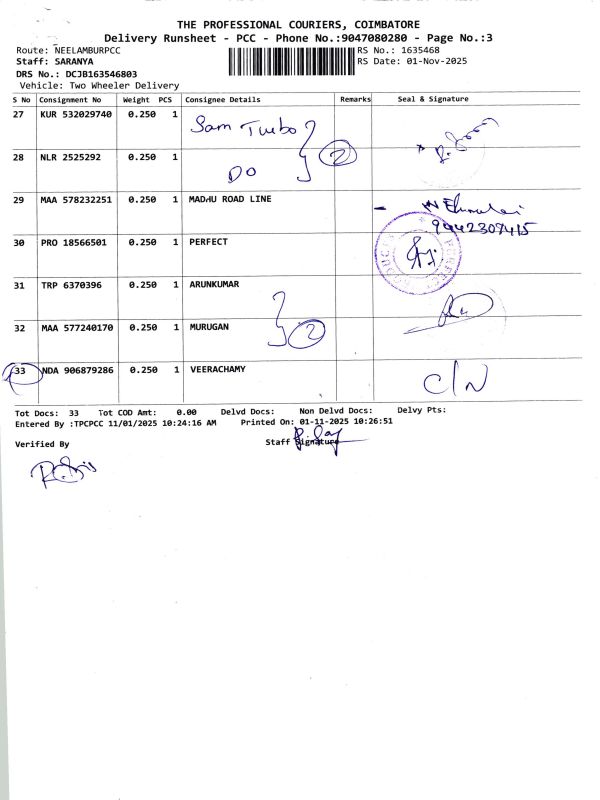 THE PROFESSIONAL COURIERS, COIMBATORE
Delivery Runsheet - PCC - Phone No.:9047080280 - Page No.:3
Route: NEELAMBURPCC RS No.: 1635468
Staff: SARANYA RS Date: 01-Nov-2025
DRS No.: DCJB163546803
Vehicle: Two Wheeler Delivery
S No Consignment No Weight PCS Consignee Details Remarks Seal & Signature
27 KUR 532029740 0.250 1 Sam Turbo
2
28 NLR 2525292 0.250 1 DO
29 MAA 578232251 0.250 1 MADHU ROAD LINE
9942309415
30 PRO 18566501 0.250 1 PERFECT
31 TRP 6370396 0.250 1 ARUNKUMAR
2
32 MAA 577240170 0.250 1 MURUGAN
33 NDA 906879286 0.250 1 VEERACHAMY C/N
Tot Docs: 33 Tot COD Amt: 0.00 Delvd Docs: Non Delvd Docs: Delvy Pts:
Entered By :TPCPCC 11/01/2025 10:24:16 AM Printed On: 01-11-2025 10:26:51
Verified By Staff Signature